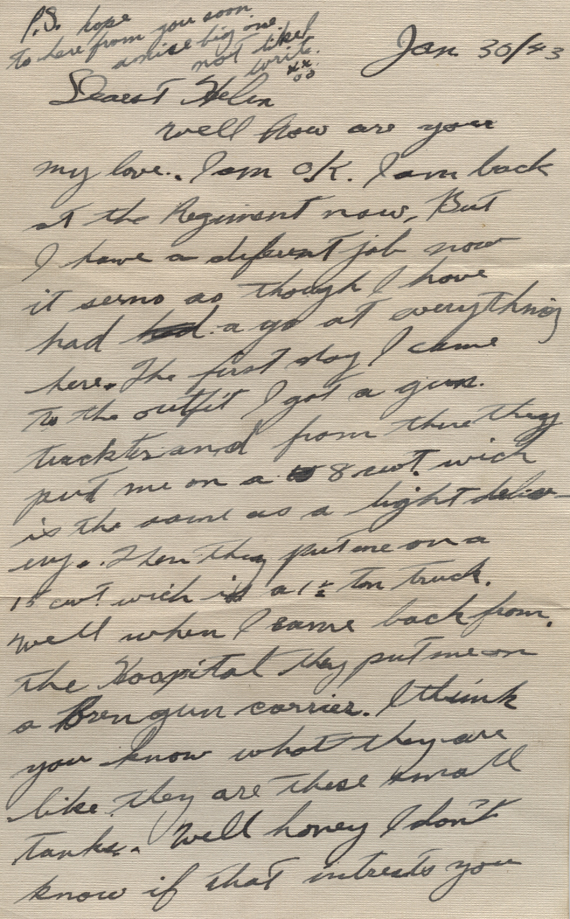 P.S. hope
to here from you soon
a nise big one.
not like I
write.
xx
oo
Jan 30/43
Dearest Helen
Well how are you
my love. I am OK. I am back
at the Regiment now, But
I have a diferent job now
it sems as though I have
had a go at everything
here. The first day I came
to the outfit I got a gun.
and from there they
put me on a 8 cwt. wich
is the same as a light deliv-
ery. Then they put me on a
15 cwt wich is a 1½ ton truck.
Well when I came back from.
the Hospital they put me on
a Bren gun carrier. I think
you know what they are
like they are these small
tanks. Well honey I don't
know if that intrests you